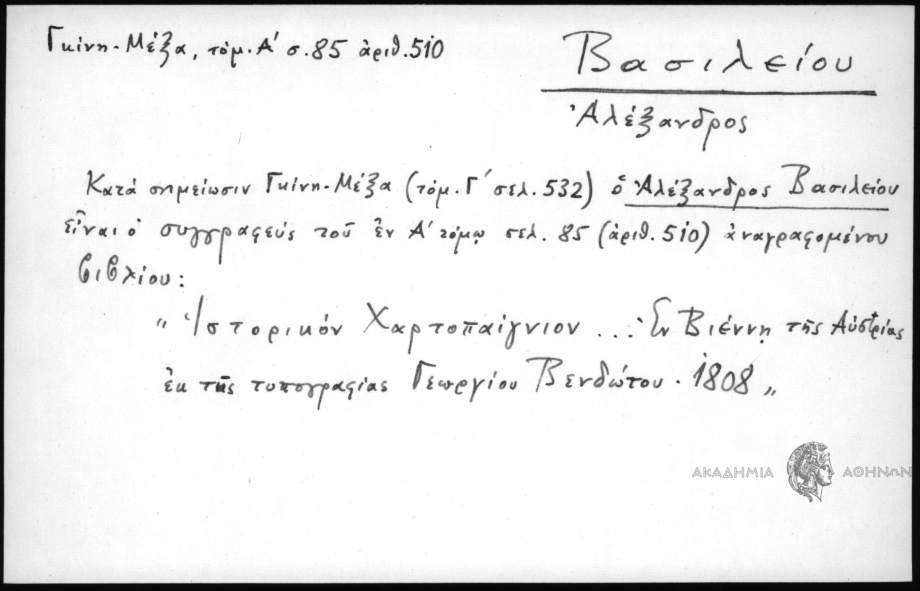 Γκίνη-Μέξα, τόμ. Α΄ σ. 85 ἀριθ. 510
Βασιλείου
Ἀλέξανδρος
Κατά σημείωσιν Γκίνη-Μέξα (τόμ. Γ΄ σελ. 532) ὁ Ἀλέξανδρος Βασιλείου
εἶναι ὁ συγγραφεύς τοῦ ἐν Α΄ τόμῳ σελ. 85 (ἀριθ. 510) ἀναγραφομένου
βιβλίου:
„ Ἱστορικόν Χαρτοπαίγνιον ... Ἐν Βιέννῃ τῆς Αὐστρίας
ἐκ τῆς τυπογραφίας Γεωργίου Βενδώτου. 1808 „
ΑΚΑΔΗΜΙΑ ΑΘΗΝΩΝ